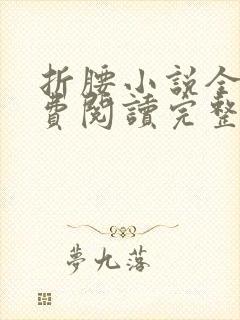 折腰小說全
費閱讀完整
夢九落